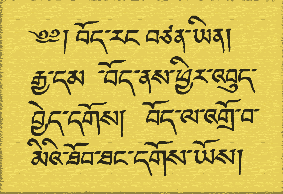 ༄༅། །བོད་རང་བཙན་ཡིན།
རྒྱ་དམ  ་བོད་ནས་ཕྱིར་འབུད་
བྱེད་དགོས།  བོད་ལ་འགྲོ་བ་
མིའི་ཐོབ་ཐང་དགོས་ཡོས།